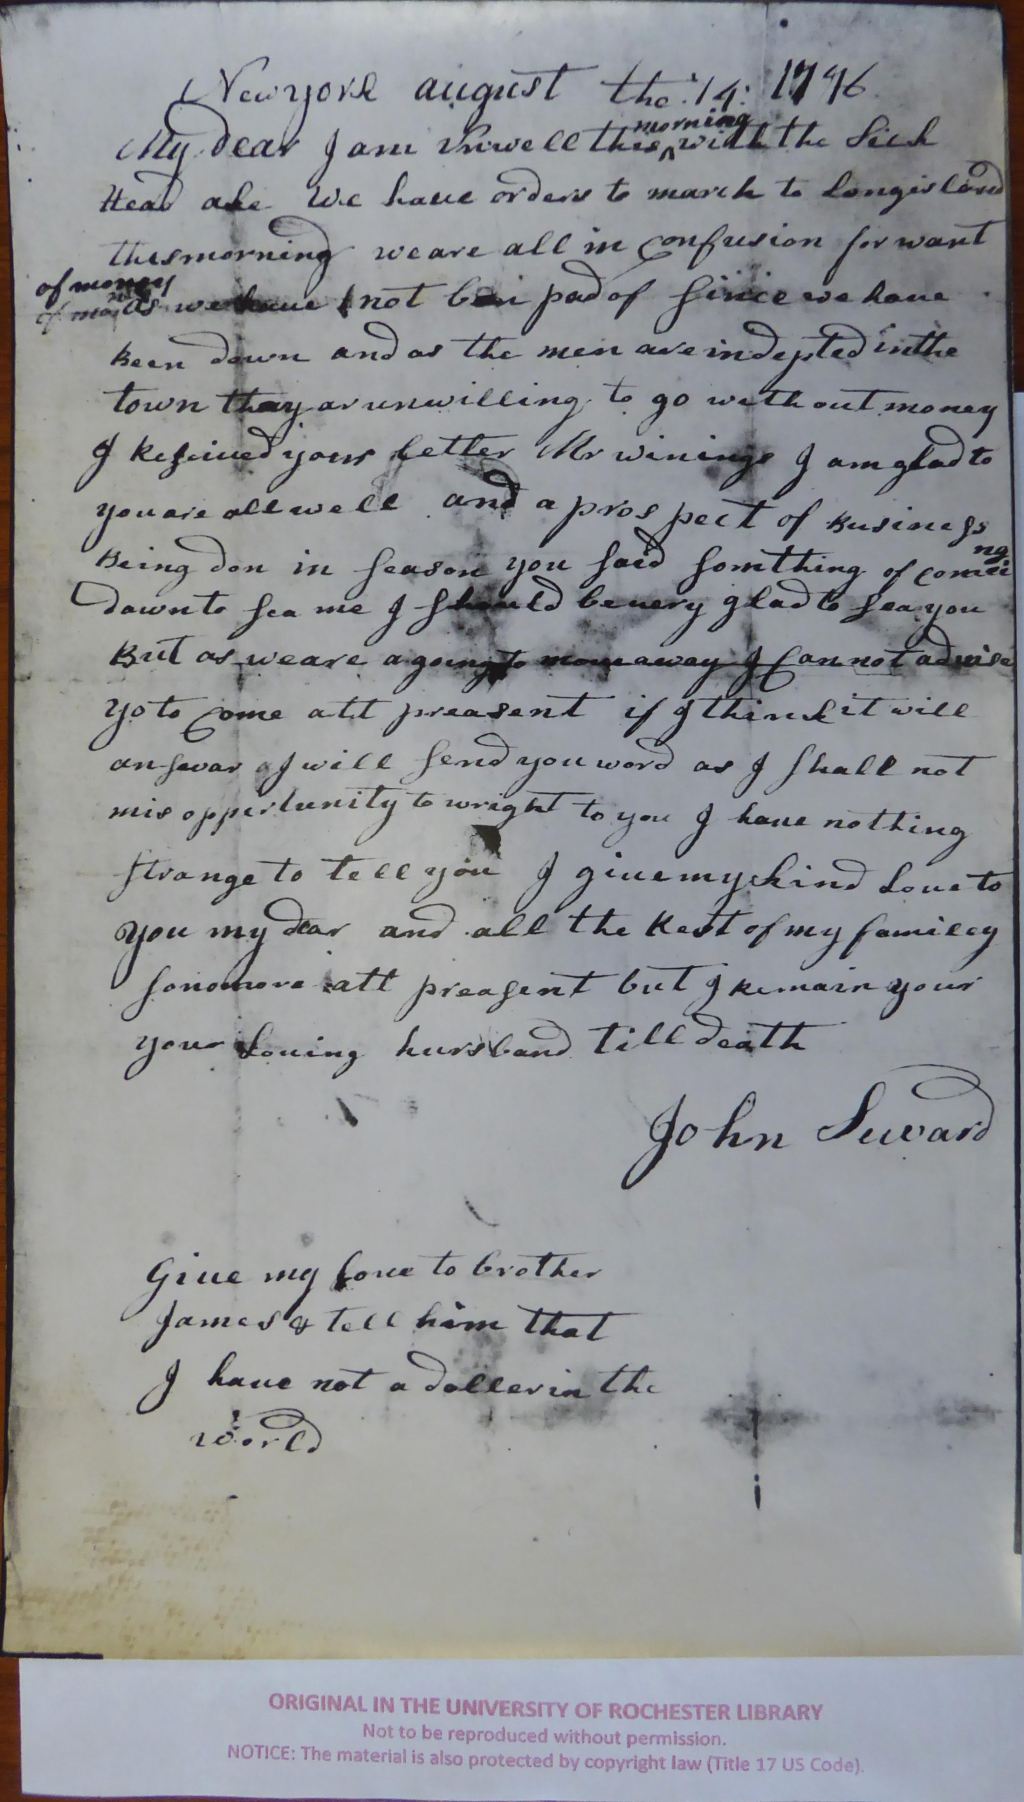 New york august the 14: 1776
My dear I am Unwell this morning with the Sick
Head ake We have orders to march to Longisland
thismorning weare all in confusion for want
of money as we have not bin pad of Since we have
Been down and as the men are indepted inthe
town thay ar unwilling to go without money
I Reseived your letter Mr winings I am glad to
you are all well and a prospect of Business
Being don in season you said somthing of coming
down to sea me I should be very glad to sea you
But as weare a going to move away I Can not advise
yo to Come att preasent if I think it will
answar I will send you word as I shall not
mis oppertunity to wright to you I have nothing
strange to tell you I give my kind Love to
you my dear and all the Rest of my familey
sonomore att preasent but I Remain your
your Loving hursband till death
John Seward
Give my love to brother
James & tell him that
I have not a doller in the
world
ORIGINAL IN THE UNIVERSITY OF ROCHESTER LIBRARY
Not to be reproduced without permission.
NOTICE: The material is also protected by copyright law (Title 17 US Code).